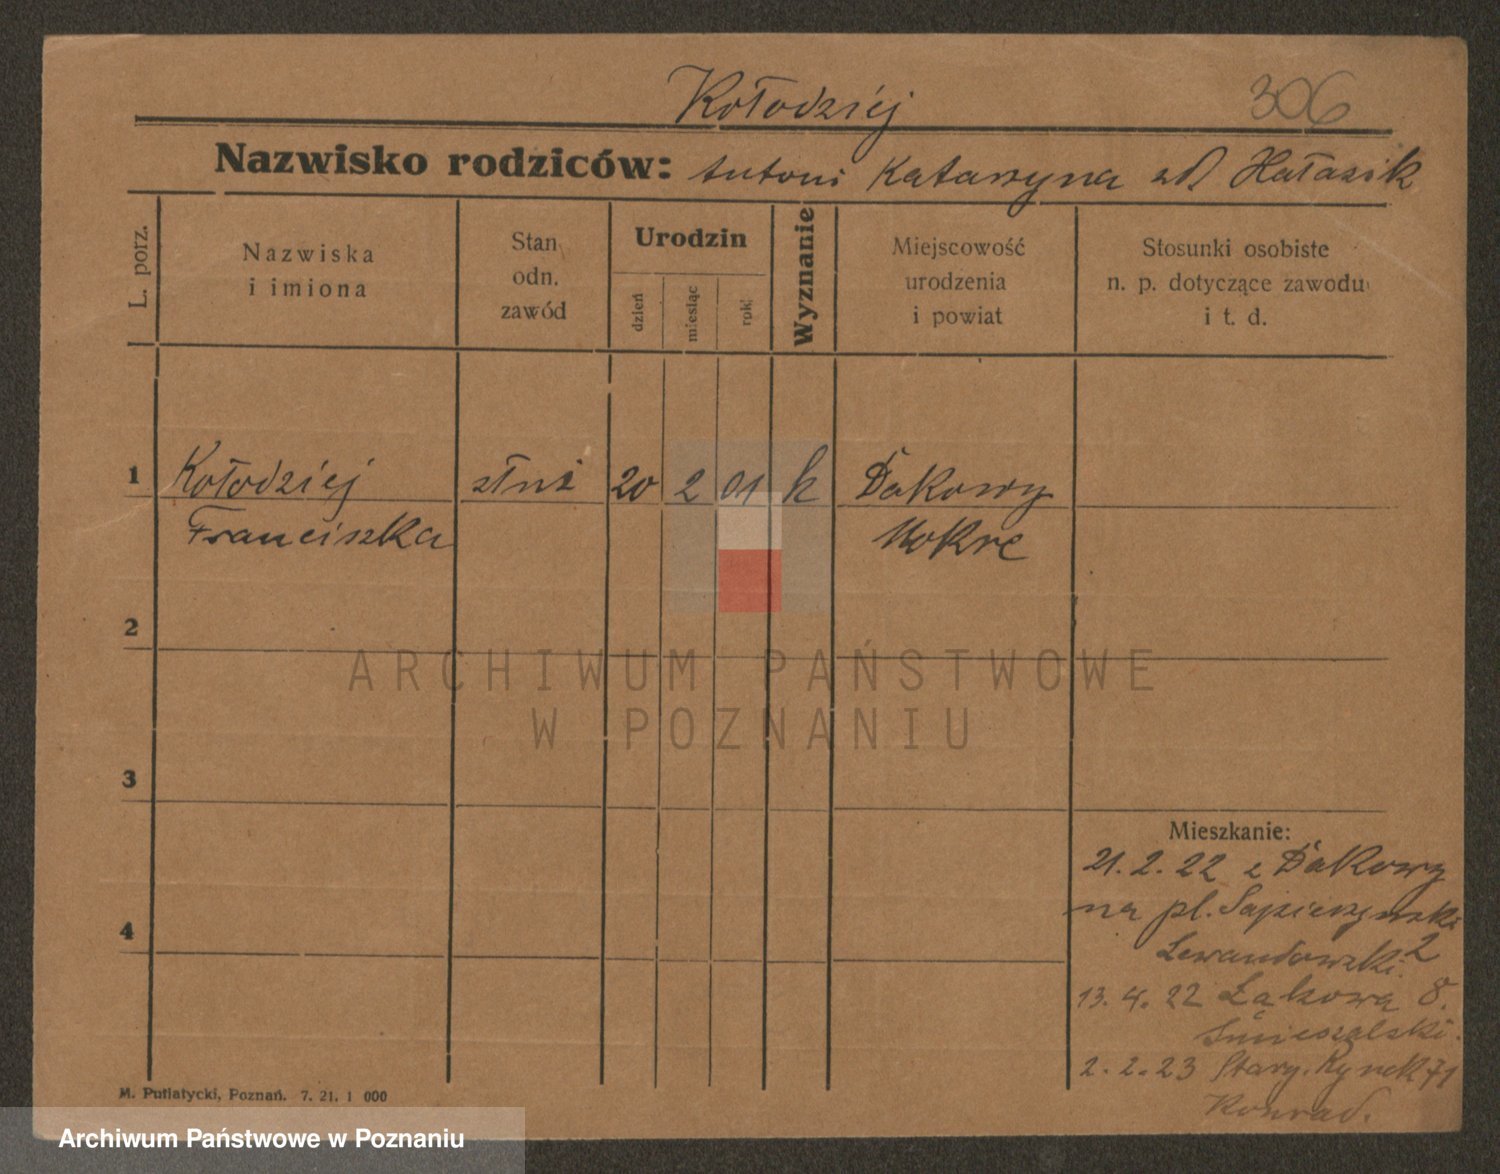 Kołodziej 306
Nazwisko rodziców: Antoni Katarzyna zd Hałasik
L. porz.
Nazwiska
i imiona
Stan
odn.
zawód
Urodzin
dzień
miesiąc
rok
Wyznanie
Miejscowość
urodzenia
i powiat
Stosunki osobiste
n. p. dotyczące zawodu
i t. d.
1 Kołodziej służ 20 2 01 k Dakowy
Franciszka Mokre
2
ARCHIWUM PAŃSTWOWE
W POZNANIU
3
Mieszkanie:
21. 2. 22 z Dakowy
na pl. Sapieżyński
4
Lewandowski 2
13. 4. 22 Łąkowa 8.
2. 2. 23 Stary. Rynek 71
Konrad.
M. Putiatycki, Poznań. 7. 21. 1 000
Archiwum Państwowe w Poznaniu